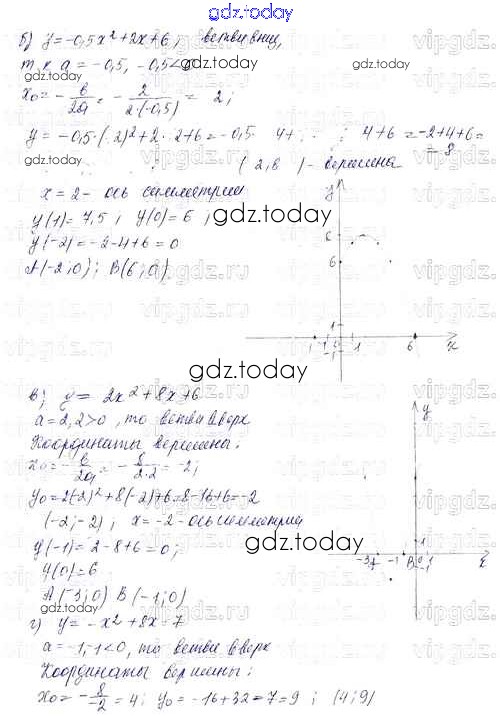 gdz.today
б) y = -0,5x² + 2x + 6; ветви вниз,
т.к. a = -0,5, -0,5<0
gdz.today
gdz.today
x₀ = -в/2a = -2/2·(-0,5) = 2;
y = -0,5·(2)²+2·2+6 = -0,5· 4+ 4+6 = -2+4+6=
= 8
(2,8) - вершина
x = 2 - ось симметрии
y(1) = 7,5; y(0) = 6;
gdz.today
y(-2) = -2-4+6 = 0
A(-2;0); B(6;0)
y
8
6
1
-1
0
1
6
x
gdz.today
в) y = 2x²+8x+6
a = 2, 2>0, то ветви вверх
Координаты вершины:
x₀ = -в/2a = -8/2·2 = -2;
y₀ = 2(-2)²+8(-2)+6=8-16+6=-2
(-2;-2); x = -2 - ось симметрии
y(-1) = 2-8+6 = 0;
gdz.today
y(0) = 6
A(-3;0) B(-1;0)
y
1
-3
-1
B
0
1
x
г) y = -x²+8x-7
gdz.today
gdz.today
a = -1, -1<0, то ветви вверх
Координаты вершины:
x₀ = -8/-2 = 4; y₀ = -16+32-7=9; (4;9)
vipgdz.ru